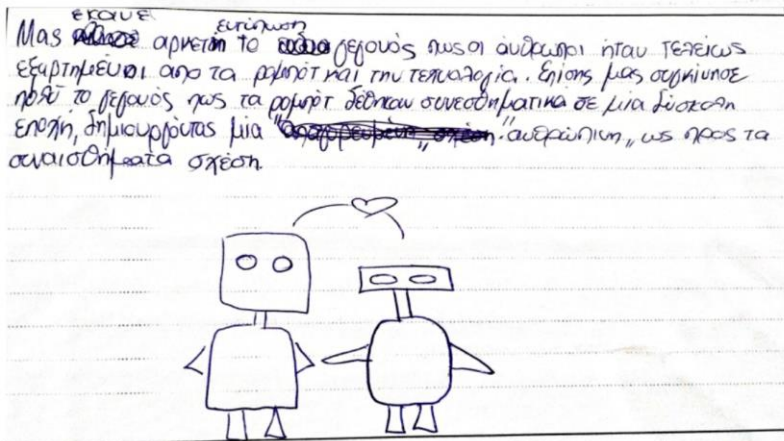 έκανε εντύπωση
Μας αρκετη το γεγονός πως οι άνθρωποι ήταν τελείως
εξαρτημένοι απο τα ρομπότ και την τεχνολογία. Επίσης μας συγκίνησε
πολύ το γεγονός πως τα ρομπότ δέθηκαν συνεσθηματικα σε μία δύσκολη
εποχή, δημιουργόντας μία "ανθρώπινη" ως προς τα
συναισθήματα σχέση.